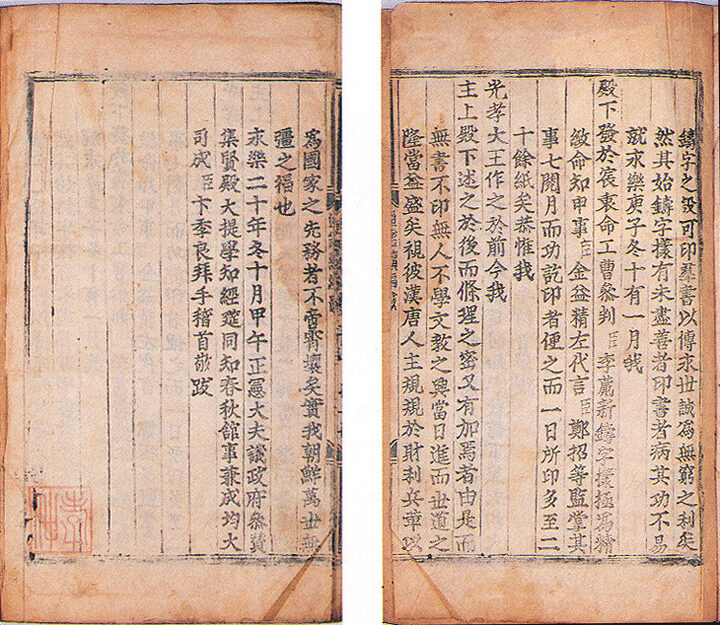 鑄字之設可印羣書以傳永世誠爲無窮之利矣
然其始鑄字樣有未盡善者印書者病其功不易
就永樂庚子冬十有一月我
殿下發於宸衷命工曹參判臣李蕆新鑄字樣極爲精
緻命知申事臣金益精左代言臣鄭招等監掌其
事七閱月而功訖印者便之而一日所印多至二
十餘紙矣恭惟我
光孝大王作之於前今我
主上殿下述之於後而條理之密又有加焉者由是而
無書不印無人不學文教之興當日進而世道之
隆當益盛矣視彼漢唐人主規規於財利兵革以
爲國家之先務者不啻霄壤矣實我朝鮮萬世無
疆之福也
永樂二十年冬十月甲午正憲大夫議政府參贊
集賢殿大提學知經筵同知春秋館事兼成均大
司成臣卞季良拜手稽首敬跋